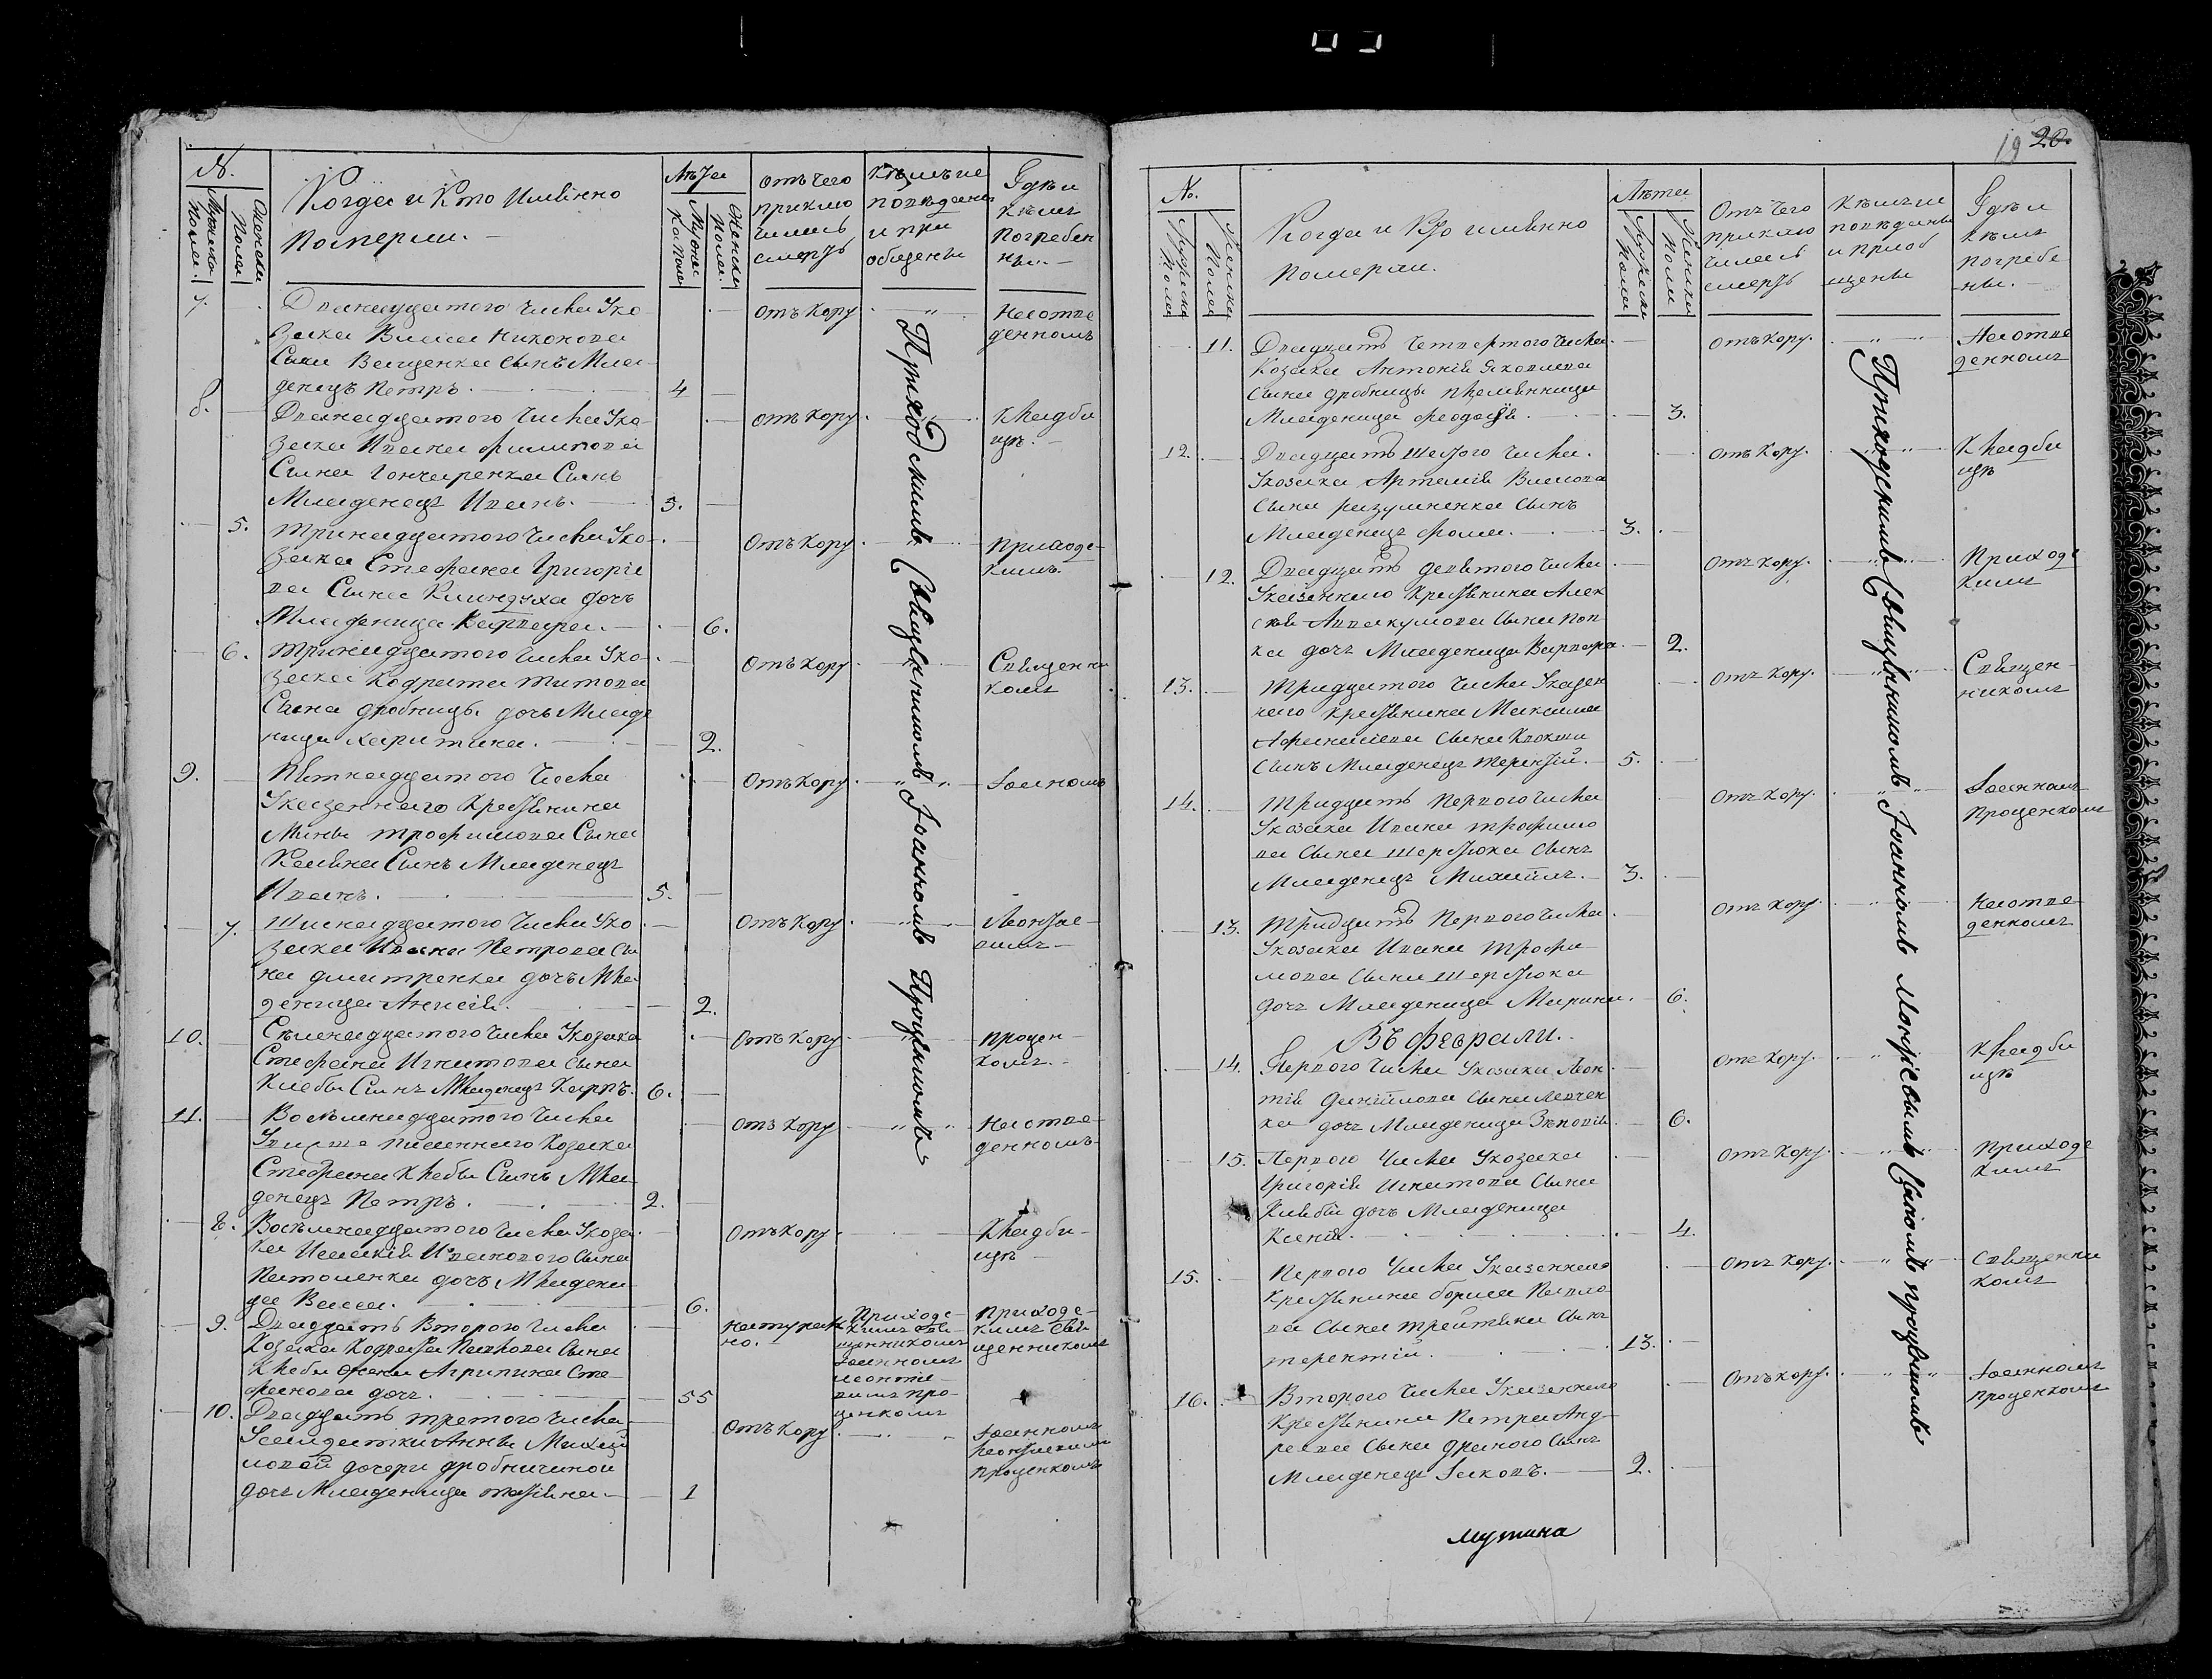 №.
Мужеска
полоа.
Женска
Пола
Когда и Кто Имянно
померли.
Лѣта
Мужес
ка пола
Женска
Пола.
отъ чего
приклю
чилась
смерть
Кѣмъ ис
повѣданы
и при
общены
Гдѣ и
кѣмъ
погребен
ны.
7.
Двенадцатого Числа Уко
зака Власа Никонова
Сына Ващенка Сынъ Мла
денецъ Петръ.
4
отъ Кору
Наотве
денномъ
8.
Двенадцатого Числа Уко
зака Ивана Филипова
Сына Гончаренка Сынъ
Младенецъ Иванъ.
5.
отъ Кору
Кладби
щѣ.
5.
Тринадцатого Числа Уко
зака Стефана Григорїе
ва Сына Клиндуха дочъ
Младеница Варвара.
6.
отъ Кору
Приходс
кимъ.
6.
Тринадцатого Числа Уко
зака Кодрата Титова
Сына дробницы дочъ Младе
ница Харитина.
2.
отъ Кору
Священни
комъ
9.
Пятнадцатого Числа
Указенного Крестянина
Мины Трофимова Сына
Сынъ Младенецъ
Иванъ.
5.
Отъ Кору
Іоанномъ
7.
Шиснадцатого Числа Уко
зака Ивана Петрова Сы
на дмитренка дочъ Мла
деница Анисія.
2.
отъ Кору
Леонтіе
вимъ
10.
Сѣмнадцатого Числа Укозака
Стефана Игнатова Сына
Клебы Сынъ Младенецъ Карпъ.
6.
отъ Кору
процен
комъ.
11.
Восѣмнадцатого Числа
писанного Козака
Стефана Клебы Сынъ Мла
денецъ Петръ.
2.
отъ Кору
Наотве
денномъ
8.
Восѣмнадцатого Числа Укоза
ка Иванового Сына
дочъ Младени
ца Васса.
6.
Отъ Кору
Кладби
щѣ
9.
Двадцать Второго Числа
Козака Кодрата Павлова Сына
Клебы жена Агрипина Сте
фанова дочъ.
55
натурал
но.
Приходс
кимъ свя
щенникомъ
Іоанномъ
Леонтіе
вимъ про
ценкомъ
приходс
кимъ свя
щенникомъ
10.
Двадцать третого Числа
Усалдатки Анны Михай
ловой дочери дробничиной
дочъ Младеница Татіяна.
1
Отъ Кору
Іоанномъ
Леонтіевимъ
проценкомъ
Приходскимъ Священникомъ Іоанномъ Проценкомъ
19 20.
№.
Мужеска
Пола
Женска
Пола
Когда и Кто имянно
Померли.
Лѣта
Мужеска
Пола
Женска
Пола
Отъ Чего
приклю
чилась
смерть
Кѣмъ ис
повѣданы
и приоб
щены
Гдѣ и
Кѣмъ
погребе
ны.
11.
Двадцать Четвертого Числа
Козака Антонія Яковлева
Сына дробницы племянница
Младеница Феодосія.
3.
отъ Кору.
Наотве
денномъ
12.
Двадцать шестого Числа.
Укозака Артемія Власова
Сына разумненка Сынъ
Младенецъ Фома.
3.
отъ Кору.
Кладби
щѣ
12.
Двадцать девятого Числа
Указенного Крестянина Алек
сѣя Аввакумова Сына Поп
ка дочъ Младеница Варвара
2.
отъ Кору.
Приходс
кимъ
13.
Тридцатого Числа Указен
ного Крестянина Максима
Афанасіева Сына Квокши
Сынъ Младенецъ Терентїй.
5.
отъ Кору.
Священ
никомъ
14.
Тридцать Первого Числа
Укозака Ивана трофимо
ва Сына Шерстюка Сынъ
Младенецъ Михаїлъ.
3.
отъ Кору.
Іоанномъ
Проценкомъ
13.
Тридцать Первого Числа
Укозака Ивана Трофи
мова Сына Шерстюка
дочъ Младеница Марина.
6.
отъ Кору.
Наотве
денномъ
Въ феврали.
14.
Первого Числа Укозака Леон
тія Даніїлова Сына Левчен
ка дочъ Младеница Зѣновія
6.
отъ Кору.
Кладби
щѣ
15.
Первого Числа Укозака
Григорія Игнатова Сына
Клебы дочъ Младеница
Ксенія.
4.
отъ Кору.
Приходс
кимъ
15.
Первого Числа Указенного
Крестянина бориса Павло
ва Сына Сынъ
терентій.
13.
отъ Кору.
Священни
комъ
16.
Второго Числа Указенного
Крестянина Петра Анд
реева Сына драного Сынъ
Младенецъ Іаковъ.
2.
отъ кору.
Іоанномъ
проценкомъ
Приходскимъ Священникомъ Іоанномъ Леонтїевымъ Сыномъ проценкомъ
мутина